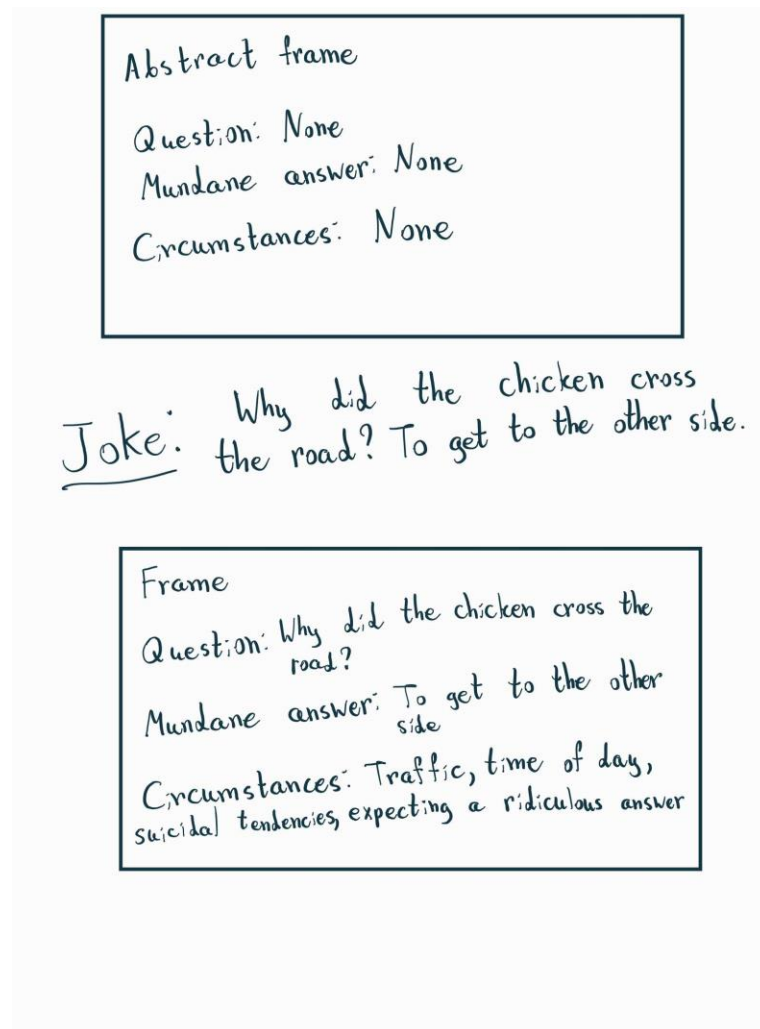 Abstract frame
Question: None
Mundane answer: None
Circumstances: None
Why did the chicken cross
Joke: the road? To get to the other side.
Frame
Question: Why did the chicken cross the
road?
Mundane answer: To get to the other
side
Circumstances: Traffic, time of day,
suicidal tendencies, expecting a ridiculous answer